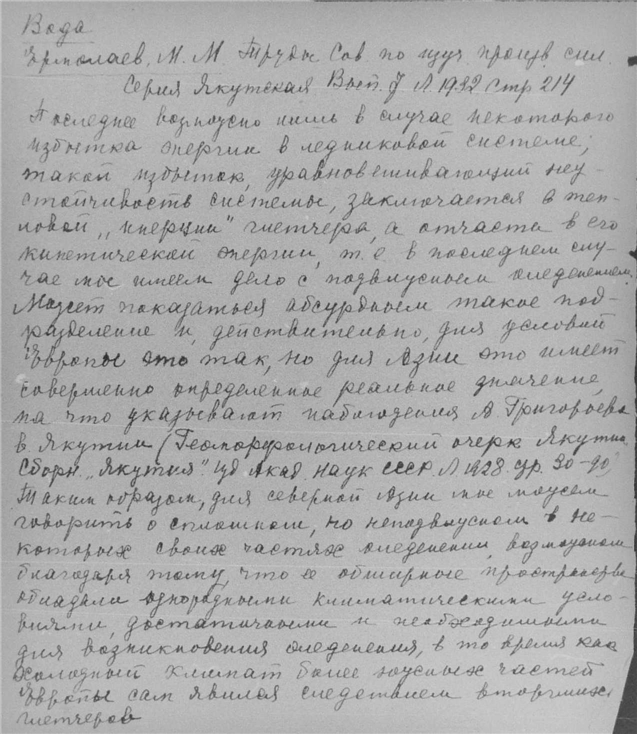 Вода
Ермолаев, М. М. Труды Сов по изуч произв сил.
Серия Якутская Вып. 7 Л 1932 стр 214
Последнее возможно лишь в случае некоторого
избытка энергии в ледниковой системе;
такой избыток, уравновешивающий неу-
стойчивость системы, заключается в теп-
ловой „инерции" глетчера, а отчасти в его
кинетической энергии, т. е в последнем слу-
чае мы имеем дело с подвижным оледенением.
Может показаться абсурдным такое под-
разделение и, действительно, для условий
Европы это так, но для Азии это имеет
совершенно определенное реальное значение,
на что указывают наблюдения А. Григорьева
в Якутии (Геоморфологический очерк Якутии
Сборн. „Якутия" изд Акад. наук СССР Л 1928. стр. 30-90)
Таким образом, для северной Азии мы можем
говорить о сплошном, но неподвижном в не-
которых своих частях оледенении, возможном
благодаря тому, что ее обширные пространства
обладали однородными климатическими усло-
виями, достаточными и необходимыми
для возникновения оледенения, в то время как
холодный климат более южных частей
Европы сам явился следствием вторгших
глетчеров